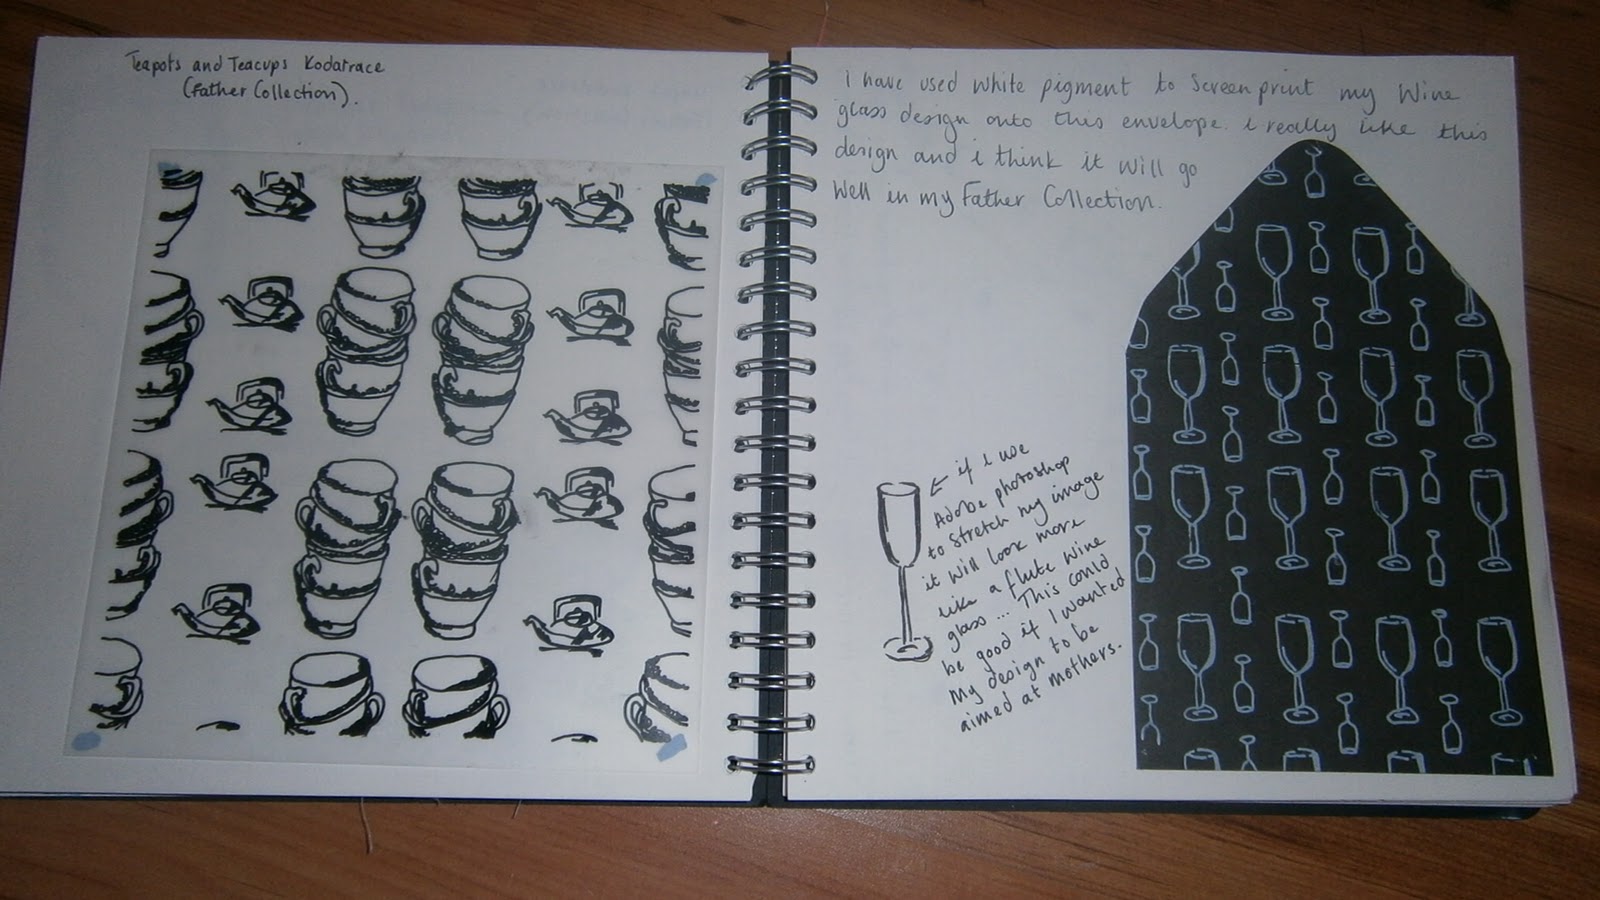 Teapots and Teacups Kodatrace
(Father Collection).
i have used white pigment to Screenprint my Wine
glass design onto this envelope. i really like this
design and i think it will go
well in my Father Collection.
← if i use
Adobe photoshop
to stretch my image
it will look more
like a flute wine
glass... This could
be good if I wanted
my design to be
aimed at mothers.